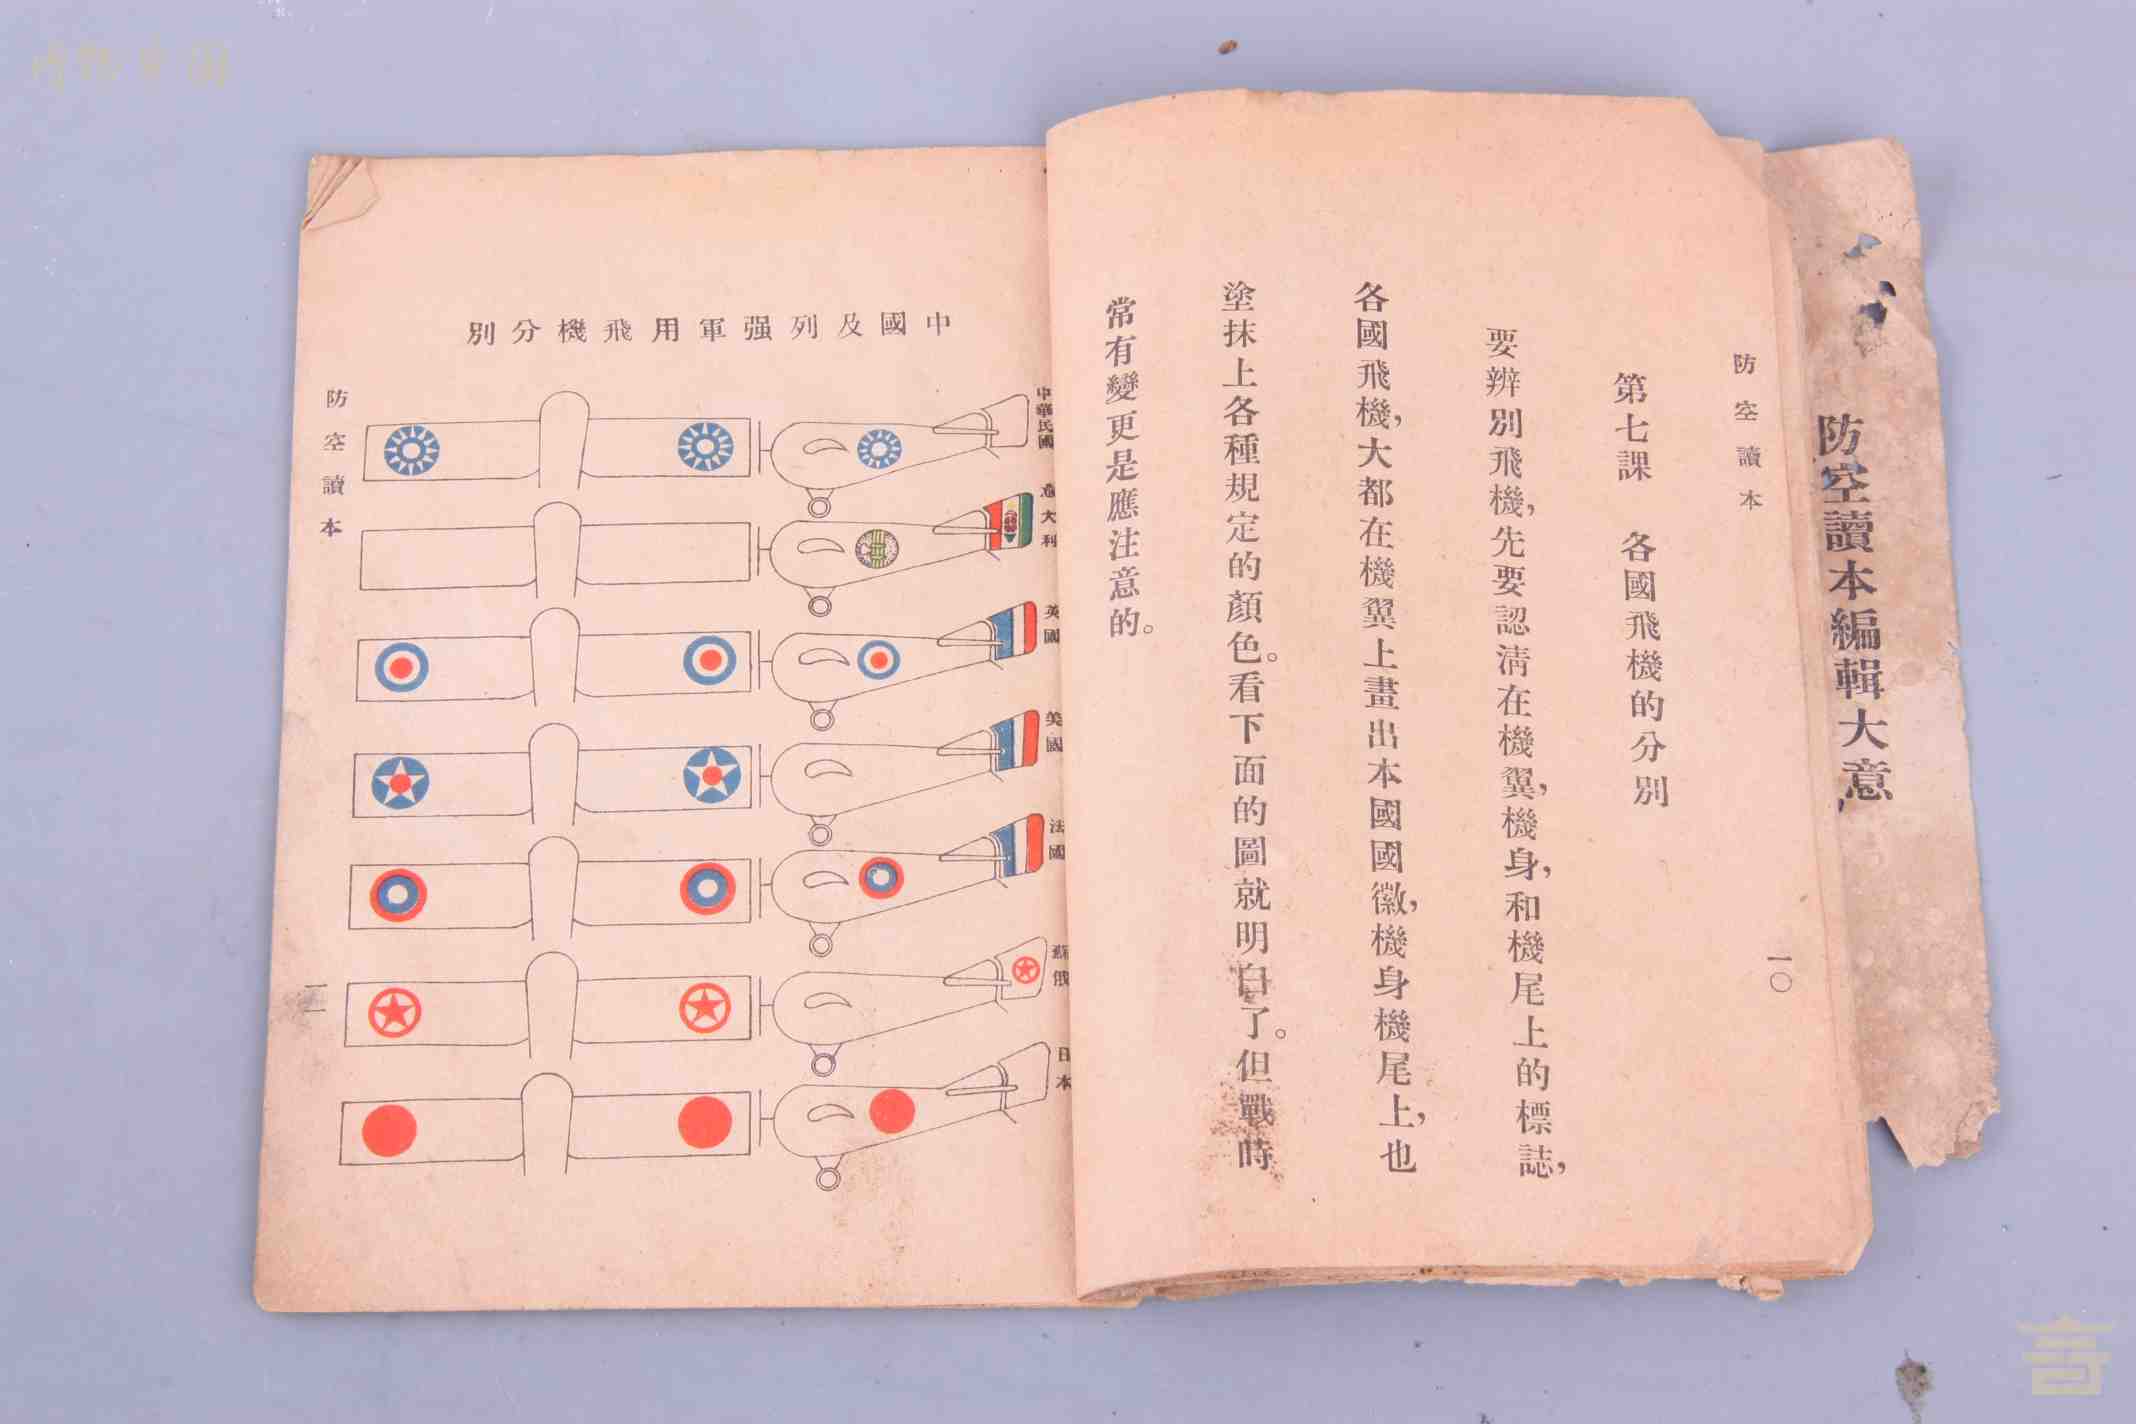 防空讀本編輯大意
防空讀本
一〇
第七課　各國飛機的分別
要辨別飛機，先要認清在機翼，機身，和機尾上的標誌，
各國飛機，大都在機翼上畫出本國國徽，機身機尾上，也
塗抹上各種規定的顏色。看下面的圖就明白了。但戰時
常有變更是應注意的。
中國及列强軍用飛機分別
中華民國
意大利
英國
美國
法國
蘇俄
日本
防空讀本
一一